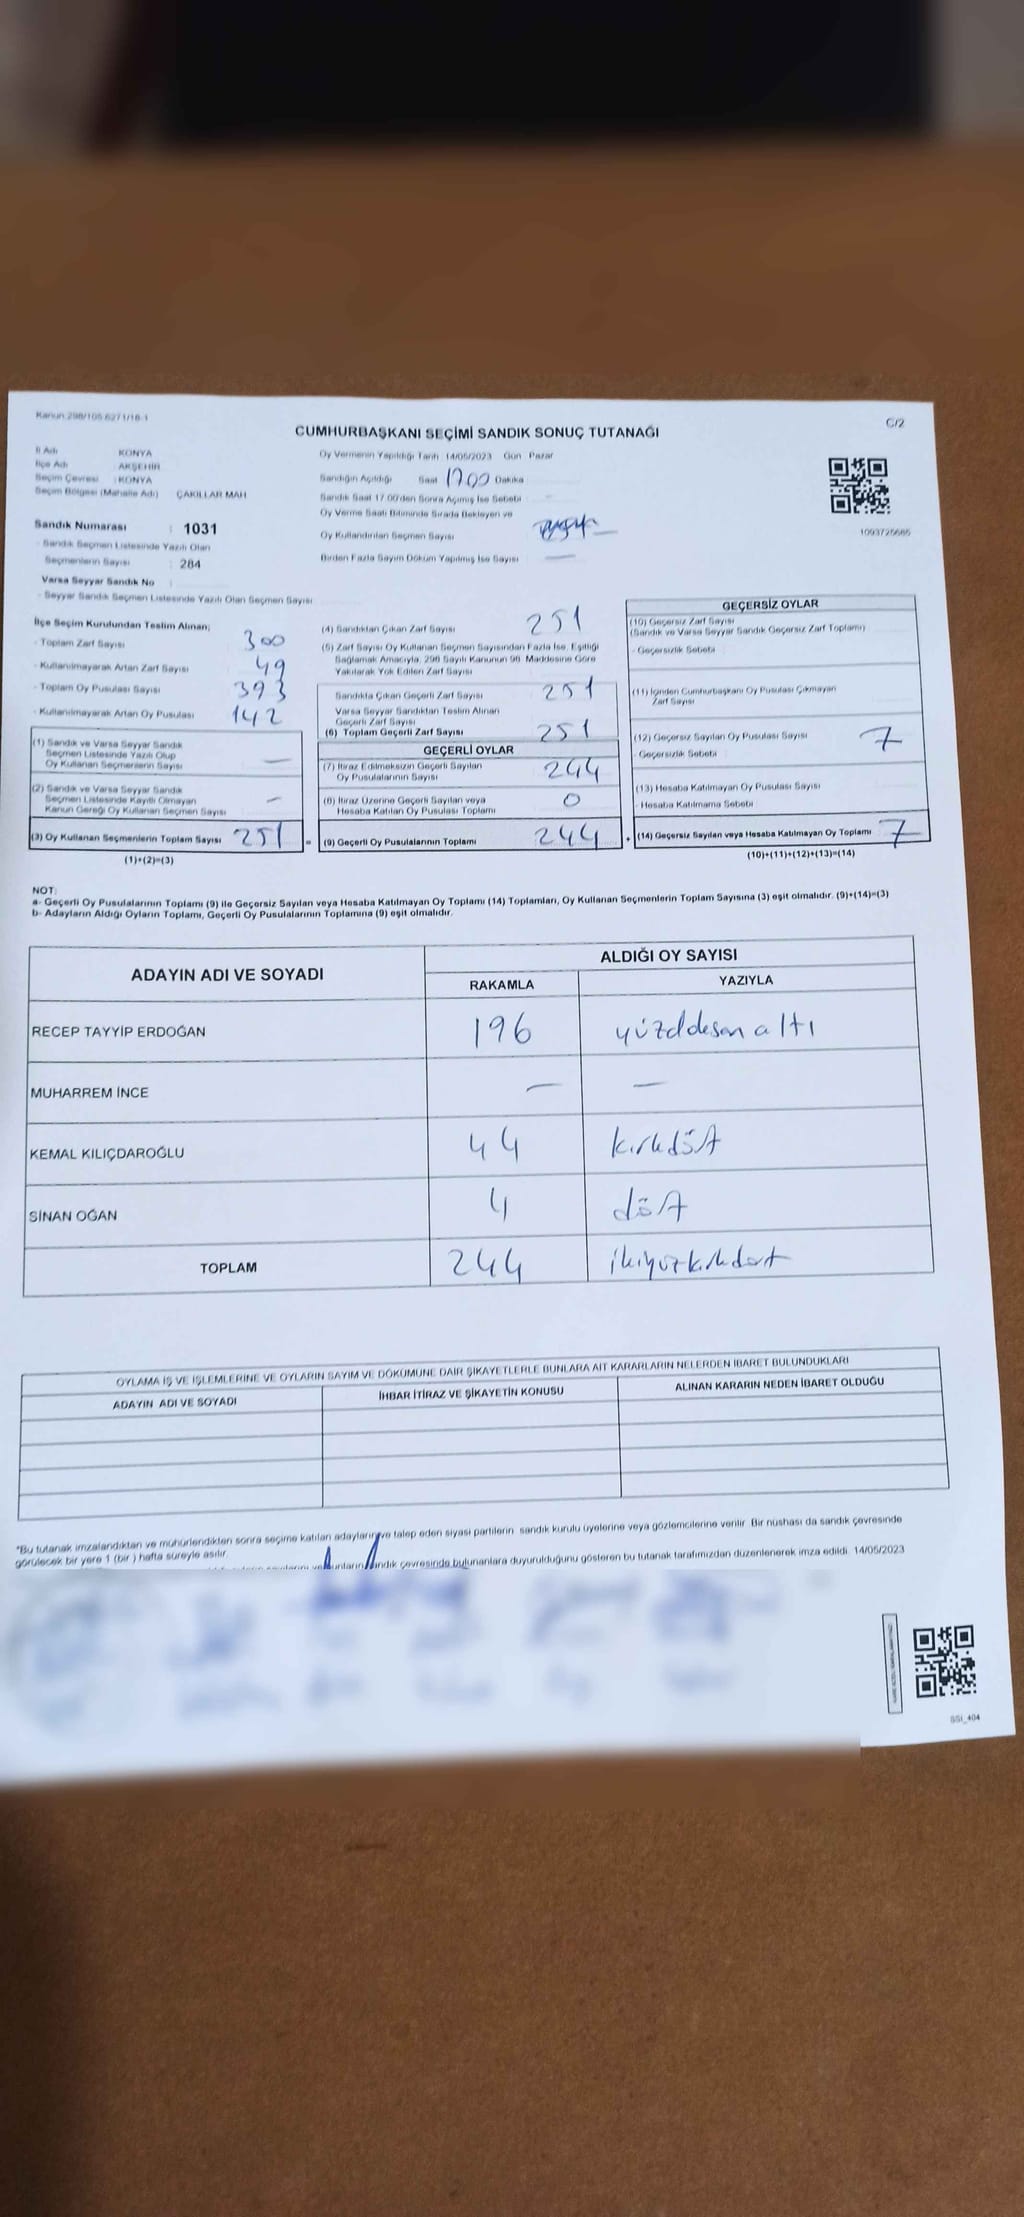 Kanun:298/105.6271/16-1
C/2
CUMHURBAŞKANI SEÇİMİ SANDIK SONUÇ TUTANAĞI
İl Adı : KONYA
İlçe Adı : AKŞEHİR
Seçim Çevresi : KONYA
Seçim Bölgesi (Mahalle Adı) : ÇAKILLAR MAH
Sandık Numarası : 1031
- Sandık Seçmen Listesinde Yazılı Olan
Seçmenlerin Sayısı : 284
Varsa Seyyar Sandık No :
- Seyyar Sandık Seçmen Listesinde Yazılı Olan Seçmen Sayısı
Oy Vermenin Yapıldığı Tarih 14/05/2023 Gün Pazar
Sandığın Açıldığı Saat 17.00 Dakika
Sandık Saat 17.00'den Sonra Açmış İse Sebebi
Oy Verme Saati Bitiminde Sırada Bekleyen ve
Oy Kullandırılan Seçmen Sayısı
Birden Fazla Sayım Döküm Yapılmış İse Sayısı —
1093725685
İlçe Seçim Kurulundan Teslim Alınan;
- Toplam Zarf Sayısı 300
- Kullanılmayarak Artan Zarf Sayısı 49
- Toplam Oy Pusulası Sayısı 393
- Kullanılmayarak Artan Oy Pusulası 142
(1) Sandık ve Varsa Seyyar Sandık
Seçmen Listesinde Yazılı Olup
Oy Kullanan Seçmenlerin Sayısı —
(2) Sandık ve Varsa Seyyar Sandık
Seçmen Listesinde Kayıtlı Olmayan
Kanun Gereği Oy Kullanan Seçmen Sayısı —
(3) Oy Kullanan Seçmenlerin Toplam Sayısı 251 =
(1)+(2)=(3)
(4) Sandıktan Çıkan Zarf Sayısı 251
(5) Zarf Sayısı Oy Kullanan Seçmen Sayısından Fazla İse, Eşitliği
Sağlamak Amacıyla, 298 Sayılı Kanunun 98. Maddesine Göre
Yakılarak Yok Edilen Zarf Sayısı
Sandıkta Çıkan Geçerli Zarf Sayısı 251
Varsa Seyyar Sandıktan Teslim Alınan
Geçerli Zarf Sayısı
(6) Toplam Geçerli Zarf Sayısı 251
GEÇERLİ OYLAR
(7) İtiraz Edilmeksizin Geçerli Sayılan
Oy Pusulalarının Sayısı 244
(8) İtiraz Üzerine Geçerli Sayılan veya
Hesaba Katılan Oy Pusulası Toplamı 0
(9) Geçerli Oy Pusulalarının Toplamı 244 +
GEÇERSİZ OYLAR
(10) Geçersiz Zarf Sayısı
(Sandık ve Varsa Seyyar Sandık Geçersiz Zarf Toplamı)
- Geçersizlik Sebebi
(11) İçinden Cumhurbaşkanı Oy Pusulası Çıkmayan
Zarf Sayısı
(12) Geçersiz Sayılan Oy Pusulası Sayısı 7
- Geçersizlik Sebebi
(13) Hesaba Katılmayan Oy Pusulası Sayısı
- Hesaba Katılmama Sebebi
(14) Geçersiz Sayılan veya Hesaba Katılmayan Oy Toplamı 7
(10)+(11)+(12)+(13)=(14)
NOT:
a- Geçerli Oy Pusulalarının Toplamı (9) ile Geçersiz Sayılan veya Hesaba Katılmayan Oy Toplamı (14) Toplamları, Oy Kullanan Seçmenlerin Toplam Sayısına (3) eşit olmalıdır. (9)+(14)=(3)
b- Adayların Aldığı Oyların Toplamı, Geçerli Oy Pusulalarının Toplamına (9) eşit olmalıdır.
ADAYIN ADI VE SOYADI
ALDIĞI OY SAYISI
RAKAMLA YAZIYLA
RECEP TAYYİP ERDOĞAN 196 yüzddesan altı
MUHARREM İNCE — —
KEMAL KILIÇDAROĞLU 44 kırkdört
SİNAN OĞAN 4 dört
TOPLAM 244 ikiyüzkırkdört
OYLAMA İŞ VE İŞLEMLERİNE VE OYLARIN SAYIM VE DÖKÜMÜNE DAİR ŞİKAYETLERLE BUNLARA AİT KARARLARIN NELERDEN İBARET BULUNDUKLARI
ADAYIN ADI VE SOYADI İHBAR İTİRAZ VE ŞİKAYETİN KONUSU ALINAN KARARIN NEDEN İBARET OLDUĞU
*Bu tutanak imzalandıktan ve mühürlendikten sonra seçime katılan adayların ve talep eden siyasi partilerin sandık kurulu üyelerine veya gözlemcilerine verilir. Bir nüshası da sandık çevresinde
görülecek bir yere 1 (bir ) hafta süreyle asılır.
sandık çevresinde bulunanlara duyurulduğunu gösteren bu tutanak tarafımızdan düzenlenerek imza edildi. 14/05/2023
SSI_404